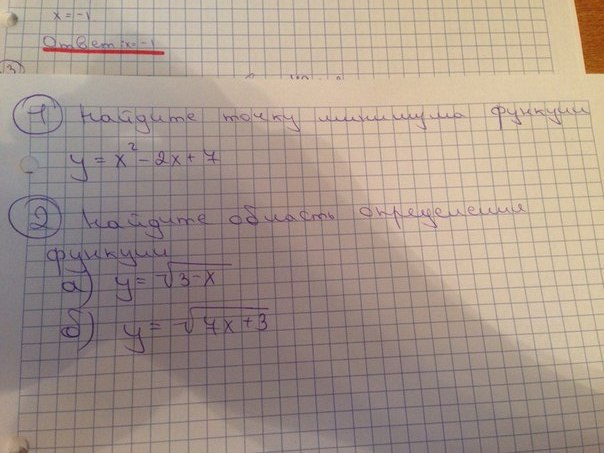 x = -1
Ответ: x = -1
3
1 Найдите точку минимума функции
y = x² - 2x + 7
2 Найдите область определения
функции
а) y = √3-x
б) y = √7x+3